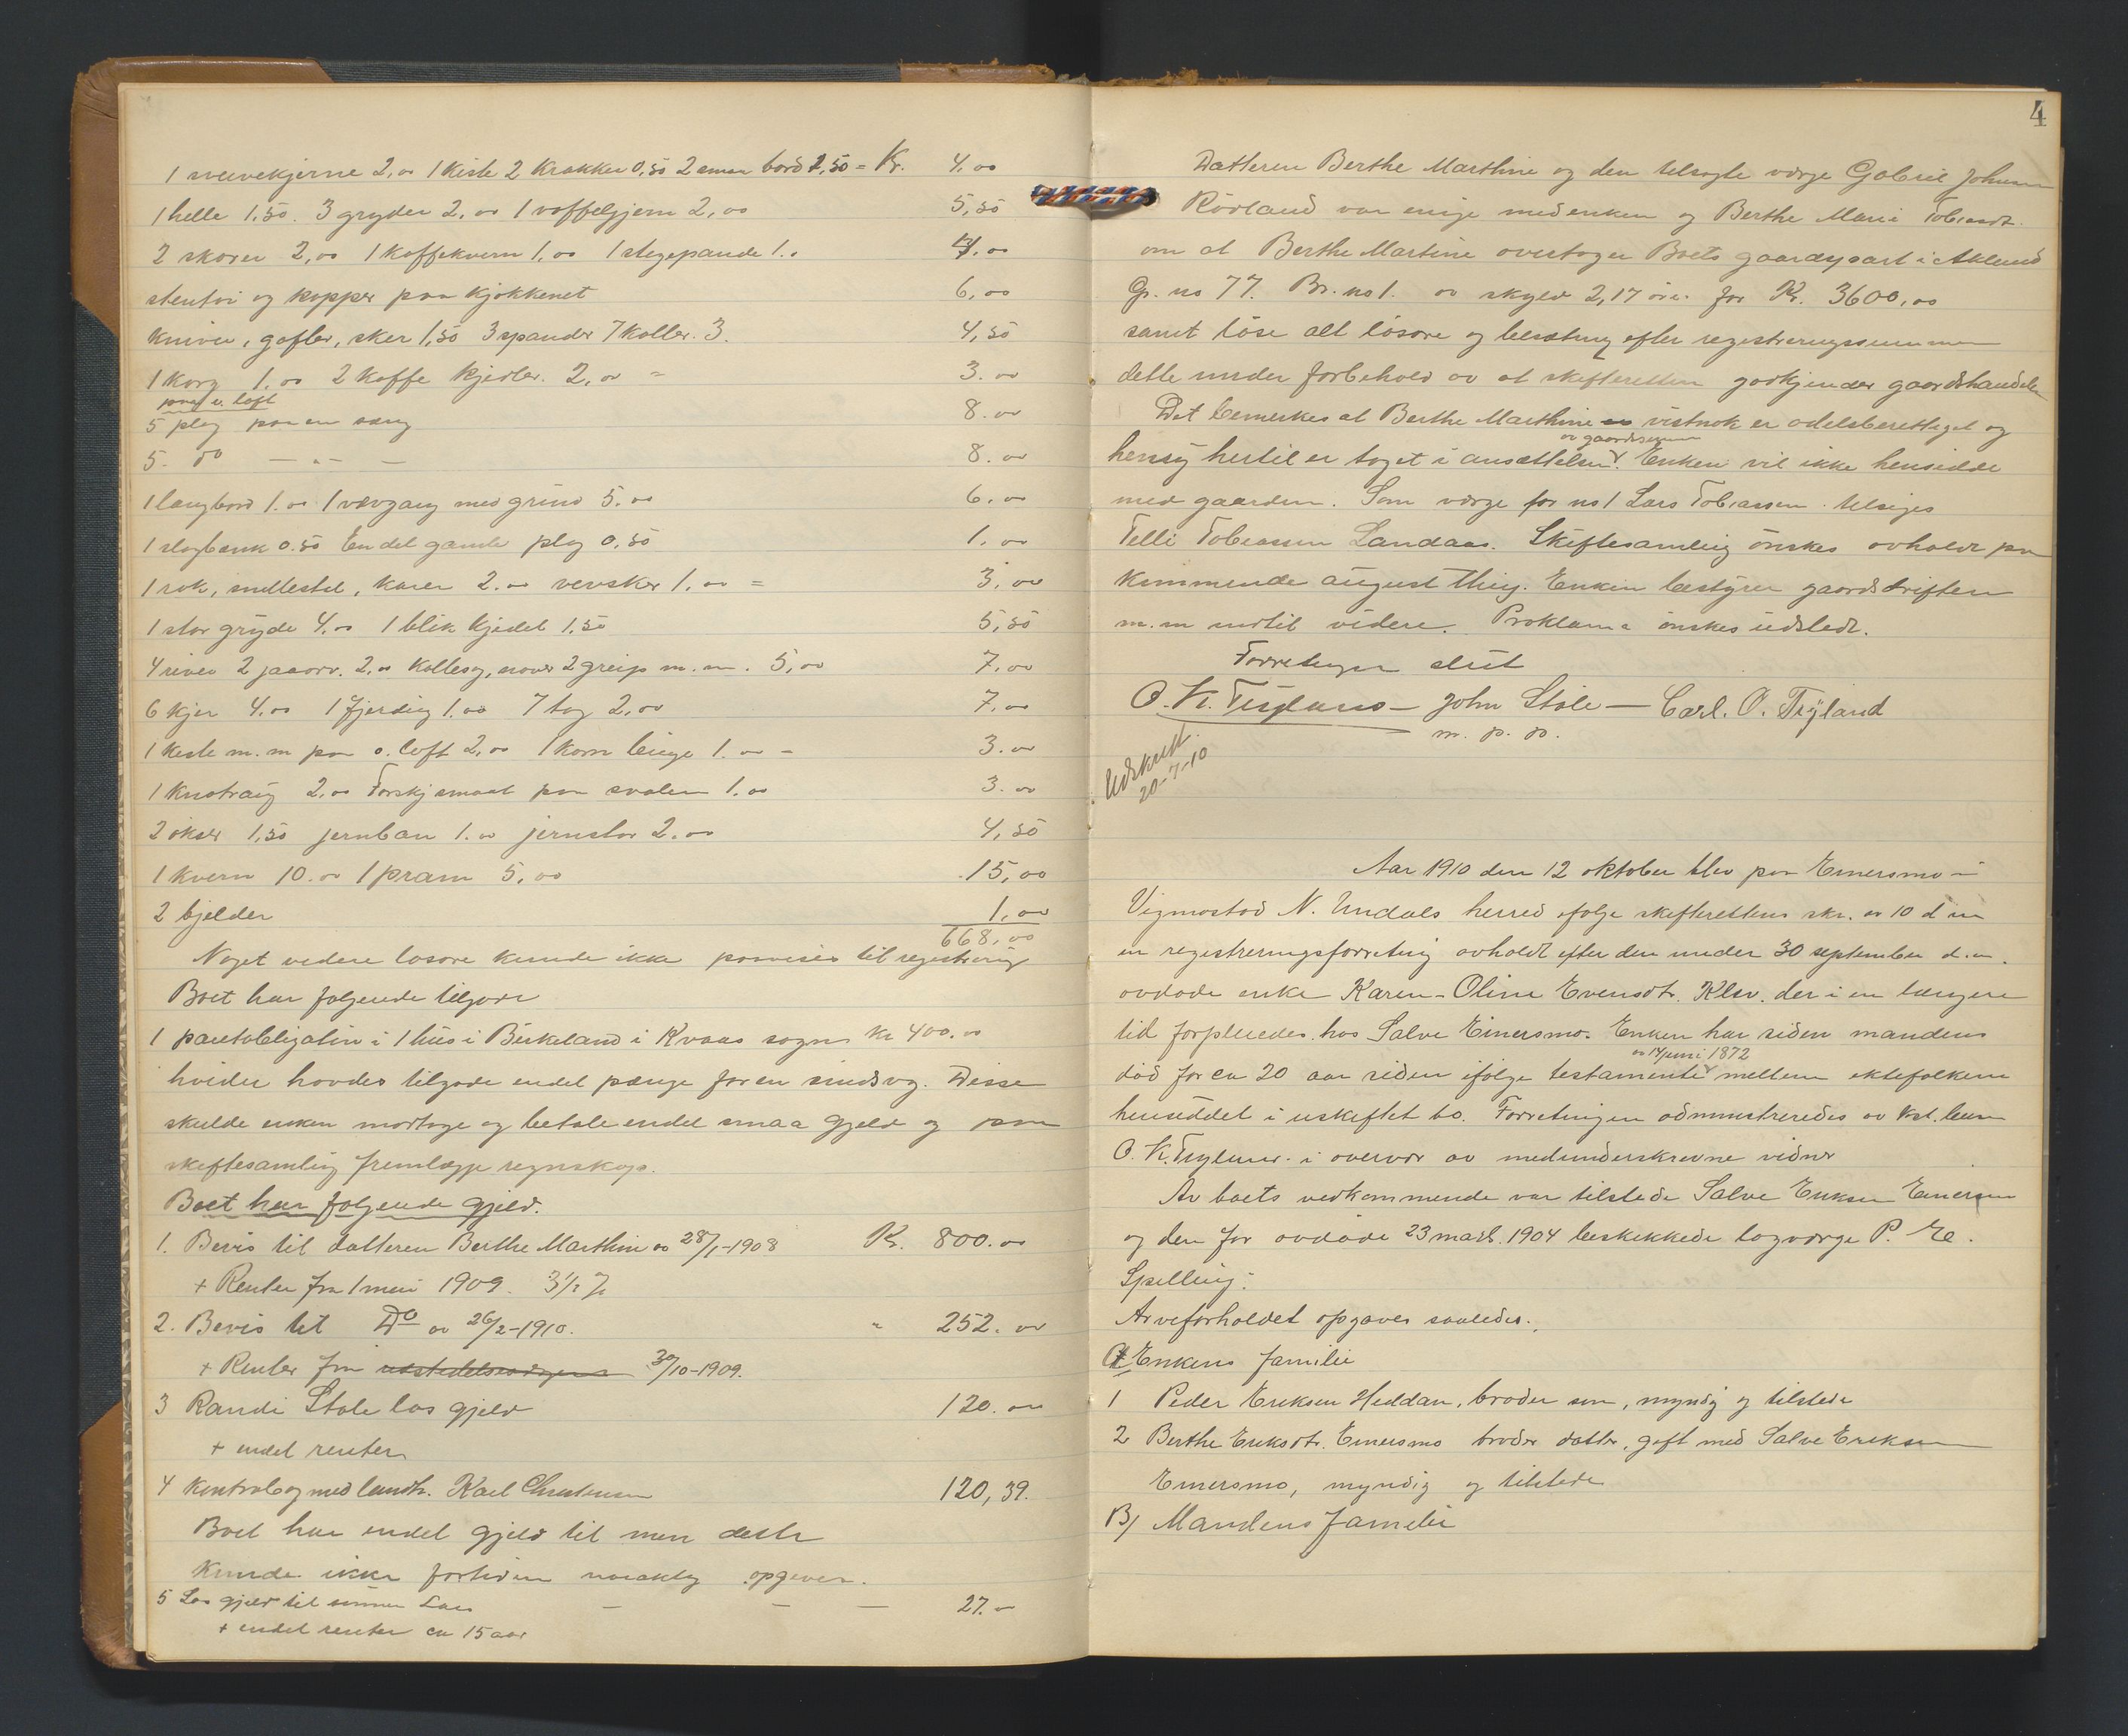 1 sveivekjerne 2,00 1 kiste 2 krakker 0,50 2 smaa bord 1,50 = Kr. 4,00
1 helle 1,50. 3 gryder 2,00 1 vaffeljern 2,00 5,50
2 skorer 2,00 1 kaffekvern 1,00 1 stegepande 1.. 4,00
stentøi og kopper paa kjøkkenet 6,00
kniver, gafler, sker 1,50 3 spander 7 koller. 3. 4,50
1 korg 1.00 2 kaffe kjedler. 2,00 = 3.00
paa v. loft
5 plag paa en sæng 8.00
5. do — „ — 8.00
1 langbord 1.00 1 vævgang med grind 5.00 6.00
1 slagbænk 0.50 En del gamle plag 0,50 1.00
1 rok, snellestol, karer 2.00 vevsker 1.00 = 3.00
1 stor gryde 4.00 1 blik kjedel 1.50 5,50
4 river 2 jaaorv. 2,00 kollesag, naver 2 greip m.m. 5,00 7.00
6 kjer 4.00 1 fjerding 1.00 7 tog 2,00 7.00
1 kiste m.m paa ø. loft 2,00 1 korn binge 1.00 - 3.00
1 knotraug 2,00 Forskj smaat paa svalen 1.00 3.00
2 økser 1,50 jernban 1.00 jernstør 2.00 4,50
1 kvern 10.00 1 pram 5,00 15,00
2 bjelder 1,00
668,00
Noget videre løsøre kunde ikke paavises til registrering
Boet har følgende tilgode
1 panteobligation i 1 hus i Birkeland i Kvaas sogn Kr 400.00
hvider havdes tilgode endel pænge for en sindsvg. Disse
skulde enken mottage og betale endel smaa gjeld og paa
skiftesamling fremlægge regnskap.
Boet har følgende gjeld.
1. Bevis til datteren Berthe Marthine av 28/1-1908 Kr. 800.00
+ Renter fra 1 mai 1909. 3½ %
2. Bevis til Do av 26/2-1910. " 252.00
+ Renter fra udstedelsesdagen 30/10-1909.
3 Randi Støle løs gjeld 120.00
+ endel renter
4 Kontrabog med landh. Karl Christensen 120,39.
Boet har endel gjeld til men dette
kunde ikke fortiden nøiaktig opgives.
5 Løs gjeld til sønnen Lars — — — 27.00
+ endel renter ca 15 aar
4
Datteren Berthe Marthine og den tilsagte værge Gabriel Johnsen
Rörland var enige med enken og Berthe Marie Tobiasdt.
om at Berthe Martine overtager Boets gaardypart i Aklund
Gr. no 77. Br. no 1. av skyld 2,17 øre. for Kr. 3600,00
samt løse alt løsøre og besætning efter registreringssummen
dette under forbehold av at skifteretten godkjender gaardshandelen
Det bemerkes at Berthe Marthine vistnok er odelsberettiget og
av gaardssummen
hensyn hertil er taget i ansættelsen. Enken vil ikke hensidde
med gaarden. Som værge for no 1 Lars Tobiassen tilsiges
Telli Tobiassen Landaas. Skiftesamling ønskes avholdt paa
kommende august thing. Enken bestyrer gaardsdriften
m.m indtil videre. Proklama ønskes udstedt.
Forretningen slut
O. K. Tryland — John Støle — Carl. O. Tryland
m. p. p.
Udskrift.
20-7-10
Aar 1910 den 12 oktober blev paa Emersmo i
Vigmostad N. Undals herred ifølge skifterettens skr. av 10 d m
en registreringsforretning avholdt efter den under 30 september d.a.
avdøde enke Karen-Oline Evensdtr. Klev. der i en længere
tid forpleiedes hos Salve Eimersmo. Enken har siden mandens
av 14 juni 1872
død for ca 20 aar siden ifølge testamente mellem ektefolkene
hensiddet i uskiftet bo. Forretningen administreredes av kst. lensm
O. K. Tryland. i overvær av medunderskrevne vidner
Av boets vedkommende var tilstede Salve Eriksen Emersmo
og den for avdøde 23 mars. 1904 beskikkede lagværge P. E.
Spilling:
Arveforholdet opgaves saaledes.
A/ Enkens familie
1 Peder Eriksen Heddan, broder søn, myndig og tilstede
2 Berthe Eriksdtr. Emersmo broder datter, gift med Salve Eriksen
Emersmo, myndig og tilstede
B/ Mandens familie